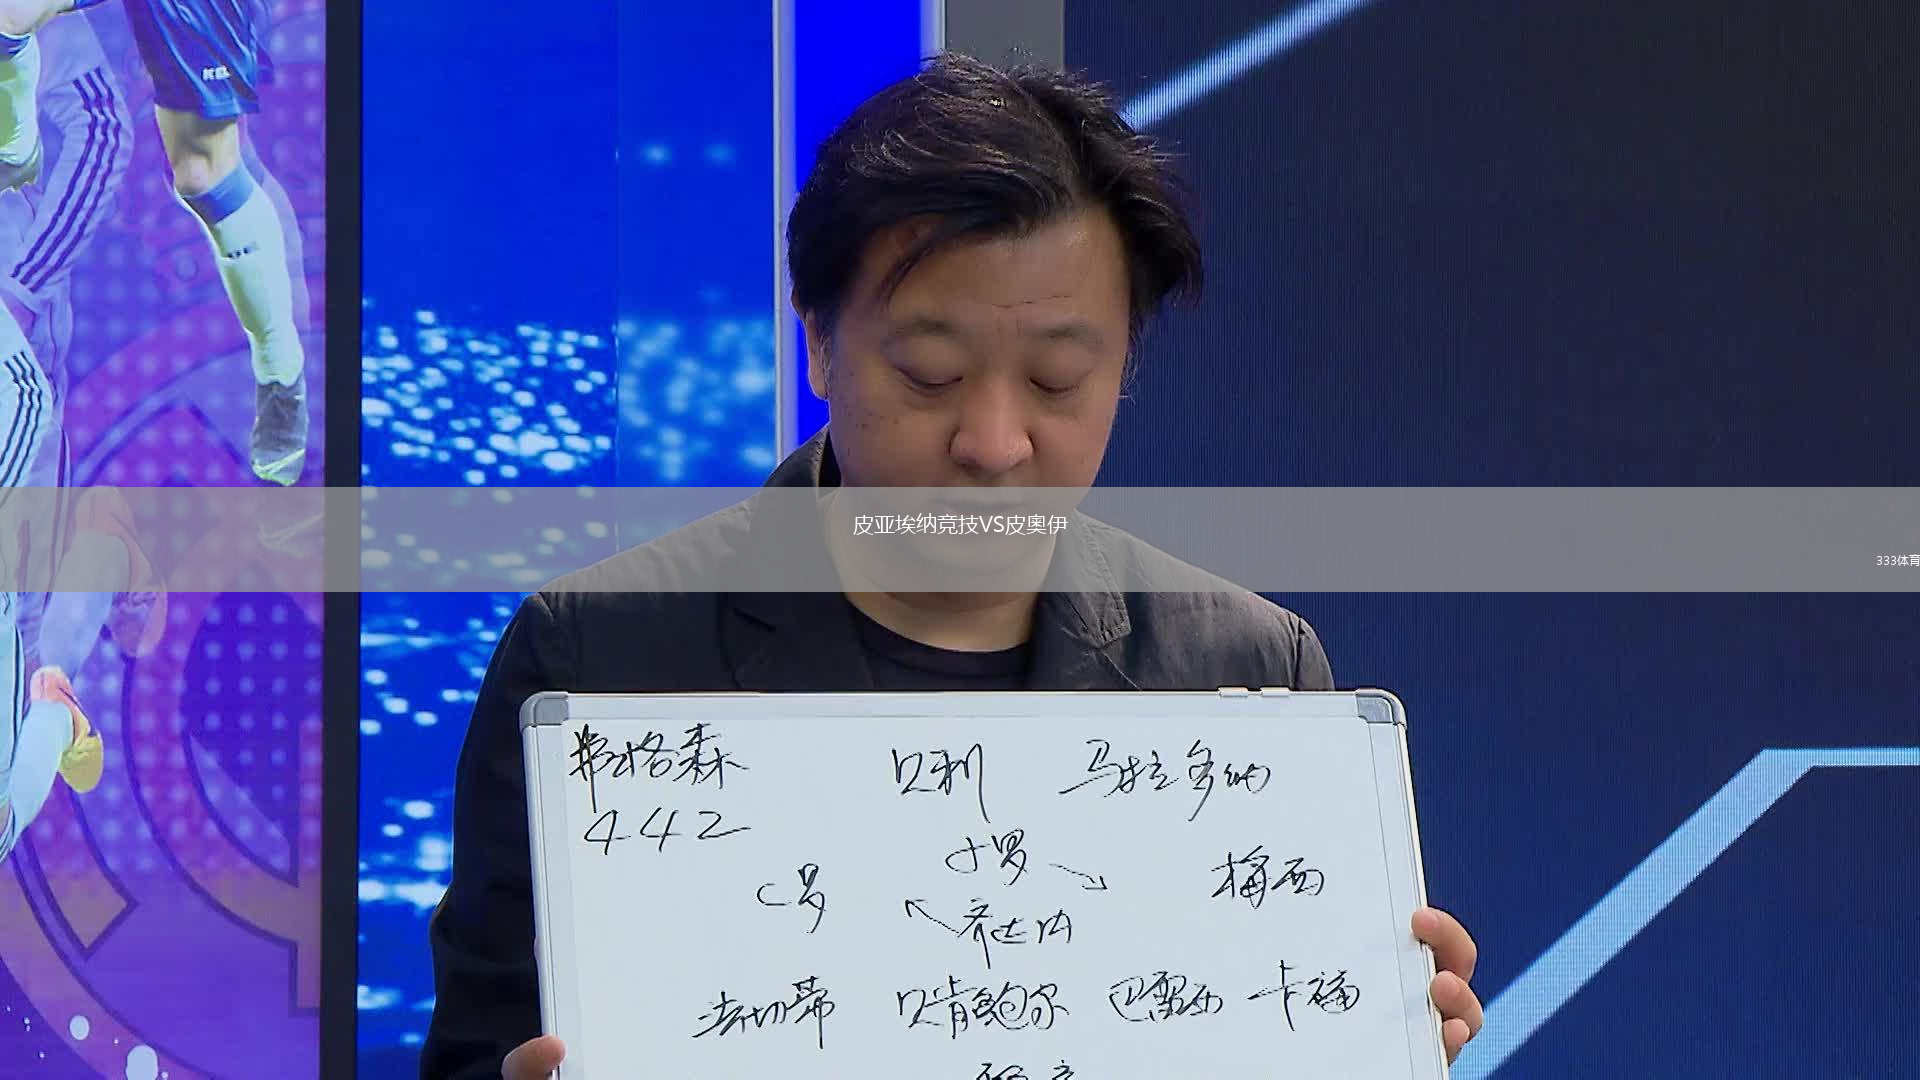 皮亚埃纳竞技VS皮奥伊
333体育
弗格森 贝利 马拉多纳
442
小罗
C罗 梅西
齐达内
法切蒂 贝肯鲍尔 巴雷西 卡福